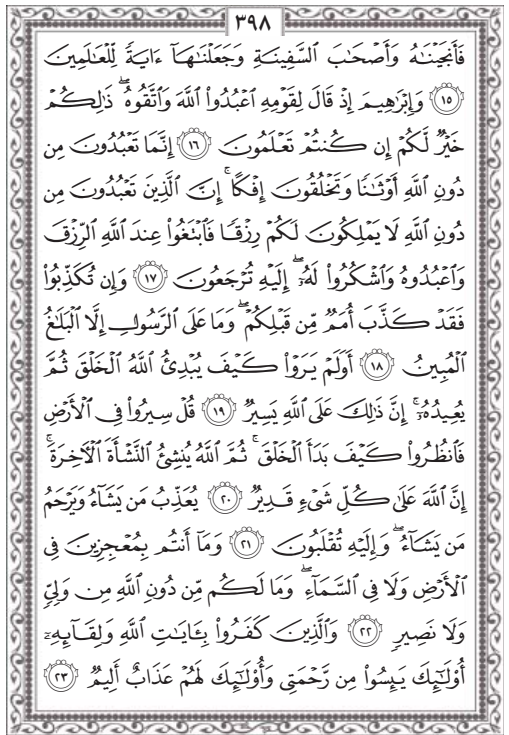 ٣٩٨
فَأَنجَيْنَٰهُ وَأَصْحَٰبَ ٱلسَّفِينَةِ وَجَعَلْنَٰهَآ ءَايَةً لِّلْعَٰلَمِينَ
١٥ وَإِبْرَٰهِيمَ إِذْ قَالَ لِقَوْمِهِ ٱعْبُدُوا۟ ٱللَّهَ وَٱتَّقُوهُ ۖ ذَٰلِكُمْ
خَيْرٌ لَّكُمْ إِن كُنتُمْ تَعْلَمُونَ ١٦ إِنَّمَا تَعْبُدُونَ مِن
دُونِ ٱللَّهِ أَوْثَٰنًا وَتَخْلُقُونَ إِفْكًا ۚ إِنَّ ٱلَّذِينَ تَعْبُدُونَ مِن
دُونِ ٱللَّهِ لَا يَمْلِكُونَ لَكُمْ رِزْقًا فَٱبْتَغُوا۟ عِندَ ٱللَّهِ ٱلرِّزْقَ
وَٱعْبُدُوهُ وَٱشْكُرُوا۟ لَهُۥٓ ۖ إِلَيْهِ تُرْجَعُونَ ١٧ وَإِن تُكَذِّبُوا۟
فَقَدْ كَذَّبَ أُمَمٌ مِّن قَبْلِكُمْ ۖ وَمَا عَلَى ٱلرَّسُولِ إِلَّا ٱلْبَلَٰغُ
ٱلْمُبِينُ ١٨ أَوَلَمْ يَرَوْا۟ كَيْفَ يُبْدِئُ ٱللَّهُ ٱلْخَلْقَ ثُمَّ
يُعِيدُهُۥٓ ۚ إِنَّ ذَٰلِكَ عَلَى ٱللَّهِ يَسِيرٌ ١٩ قُلْ سِيرُوا۟ فِى ٱلْأَرْضِ
فَٱنظُرُوا۟ كَيْفَ بَدَأَ ٱلْخَلْقَ ۚ ثُمَّ ٱللَّهُ يُنشِئُ ٱلنَّشْأَةَ ٱلْءَاخِرَةَ ۚ
إِنَّ ٱللَّهَ عَلَىٰ كُلِّ شَىْءٍ قَدِيرٌ ٢٠ يُعَذِّبُ مَن يَشَآءُ وَيَرْحَمُ
مَن يَشَآءُ ۖ وَإِلَيْهِ تُقْلَبُونَ ٢١ وَمَآ أَنتُم بِمُعْجِزِينَ فِى
ٱلْأَرْضِ وَلَا فِى ٱلسَّمَآءِ ۖ وَمَا لَكُم مِّن دُونِ ٱللَّهِ مِن وَلِىٍّ
وَلَا نَصِيرٍ ٢٢ وَٱلَّذِينَ كَفَرُوا۟ بِـَٔايَٰتِ ٱللَّهِ وَلِقَآئِهِۦٓ
أُو۟لَٰٓئِكَ يَئِسُوا۟ مِن رَّحْمَتِى وَأُو۟لَٰٓئِكَ لَهُمْ عَذَابٌ أَلِيمٌ ٢٣